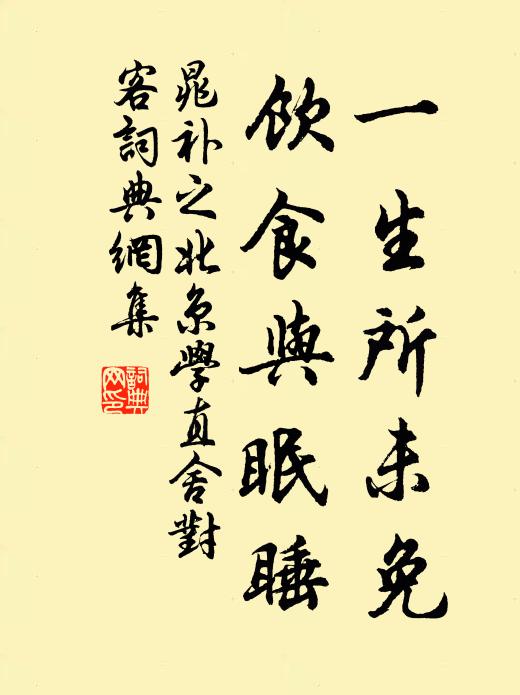 一生所未免
飲食與眠睡
晁補之北京學直舍對
客詞典網集
詞典網印